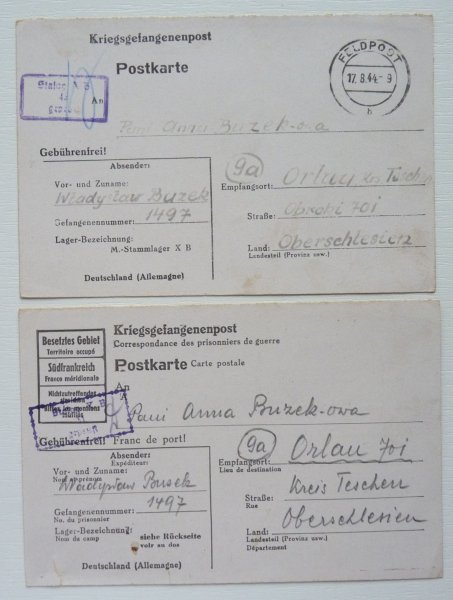 Kriegsgefangenenpost
Postkarte
FELDPOST
17.8.44-9
b
Stalag X B
An
Pani Anna Buzek-owa
Gebührenfrei!
Absender:
Vor- und Zuname:
Władysław Buzek
Gefangenennummer: 1497
Lager-Bezeichnung:
M.-Stammlager X B
Deutschland (Allemagne)
9a
Empfangsort: Orlau, Krs. Teschen
Straße: Obrobi 701
Land: Oberschlesien
Landesteil (Provinz usw.)
Besetztes Gebiet
Territoire occupé
Südfrankreich
France méridionale
Nichtzutreffendes
Kriegsgefangenenpost
Correspondance des prisonniers de guerre
Postkarte Carte postale
An
A
Pani Anna Buzek-owa
Gebührenfrei! Franc de port!
Absender:
Expéditeur:
Vor- und Zuname:
Nom et prénom
Władysław
Gefangenennummer: 1497
No. du prisonnier
Lager-Bezeichnung:
Nom du camp
siehe Rückseite
voir au dos
Deutschland (Allemagne)
9a
Empfangsort: Orlau 701
Lieu de destination
Straße: Kreis Teschen
Rue
Land: Oberschlesien
Landesteil (Provinz usw.)
Département